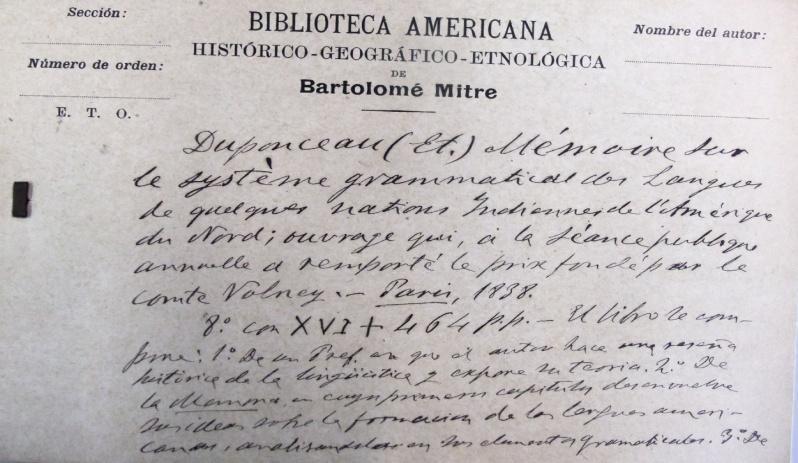 Sección:
Número de orden:
E. T. O.
BIBLIOTECA AMERICANA
HISTÓRICO-GEOGRÁFICO-ETNOLÓGICA
DE
Bartolomé Mitre
Nombre del autor:
Duponceau (Et.) Mémoire sur
le système grammatical des Langues
de quelques nations Indiennes de l'Amérique
du Nord; ouvrage qui, à la séance publique
annuelle a remporté le prix fondé par le
comte Volney. — Paris, 1838.
8.º con XVI + 464 p.p. — El libro se com-
pone: 1.º De un Pref. en que el autor hace una reseña
histórica de la lingüística y expone su teoria. 2.º De
la Memoria, en cuyos primeros capítulos desenvuelve
sus ideas sobre la formacion de las lenguas ameri-
canas, analisandolas en sus elementos gramaticales. 3.º De